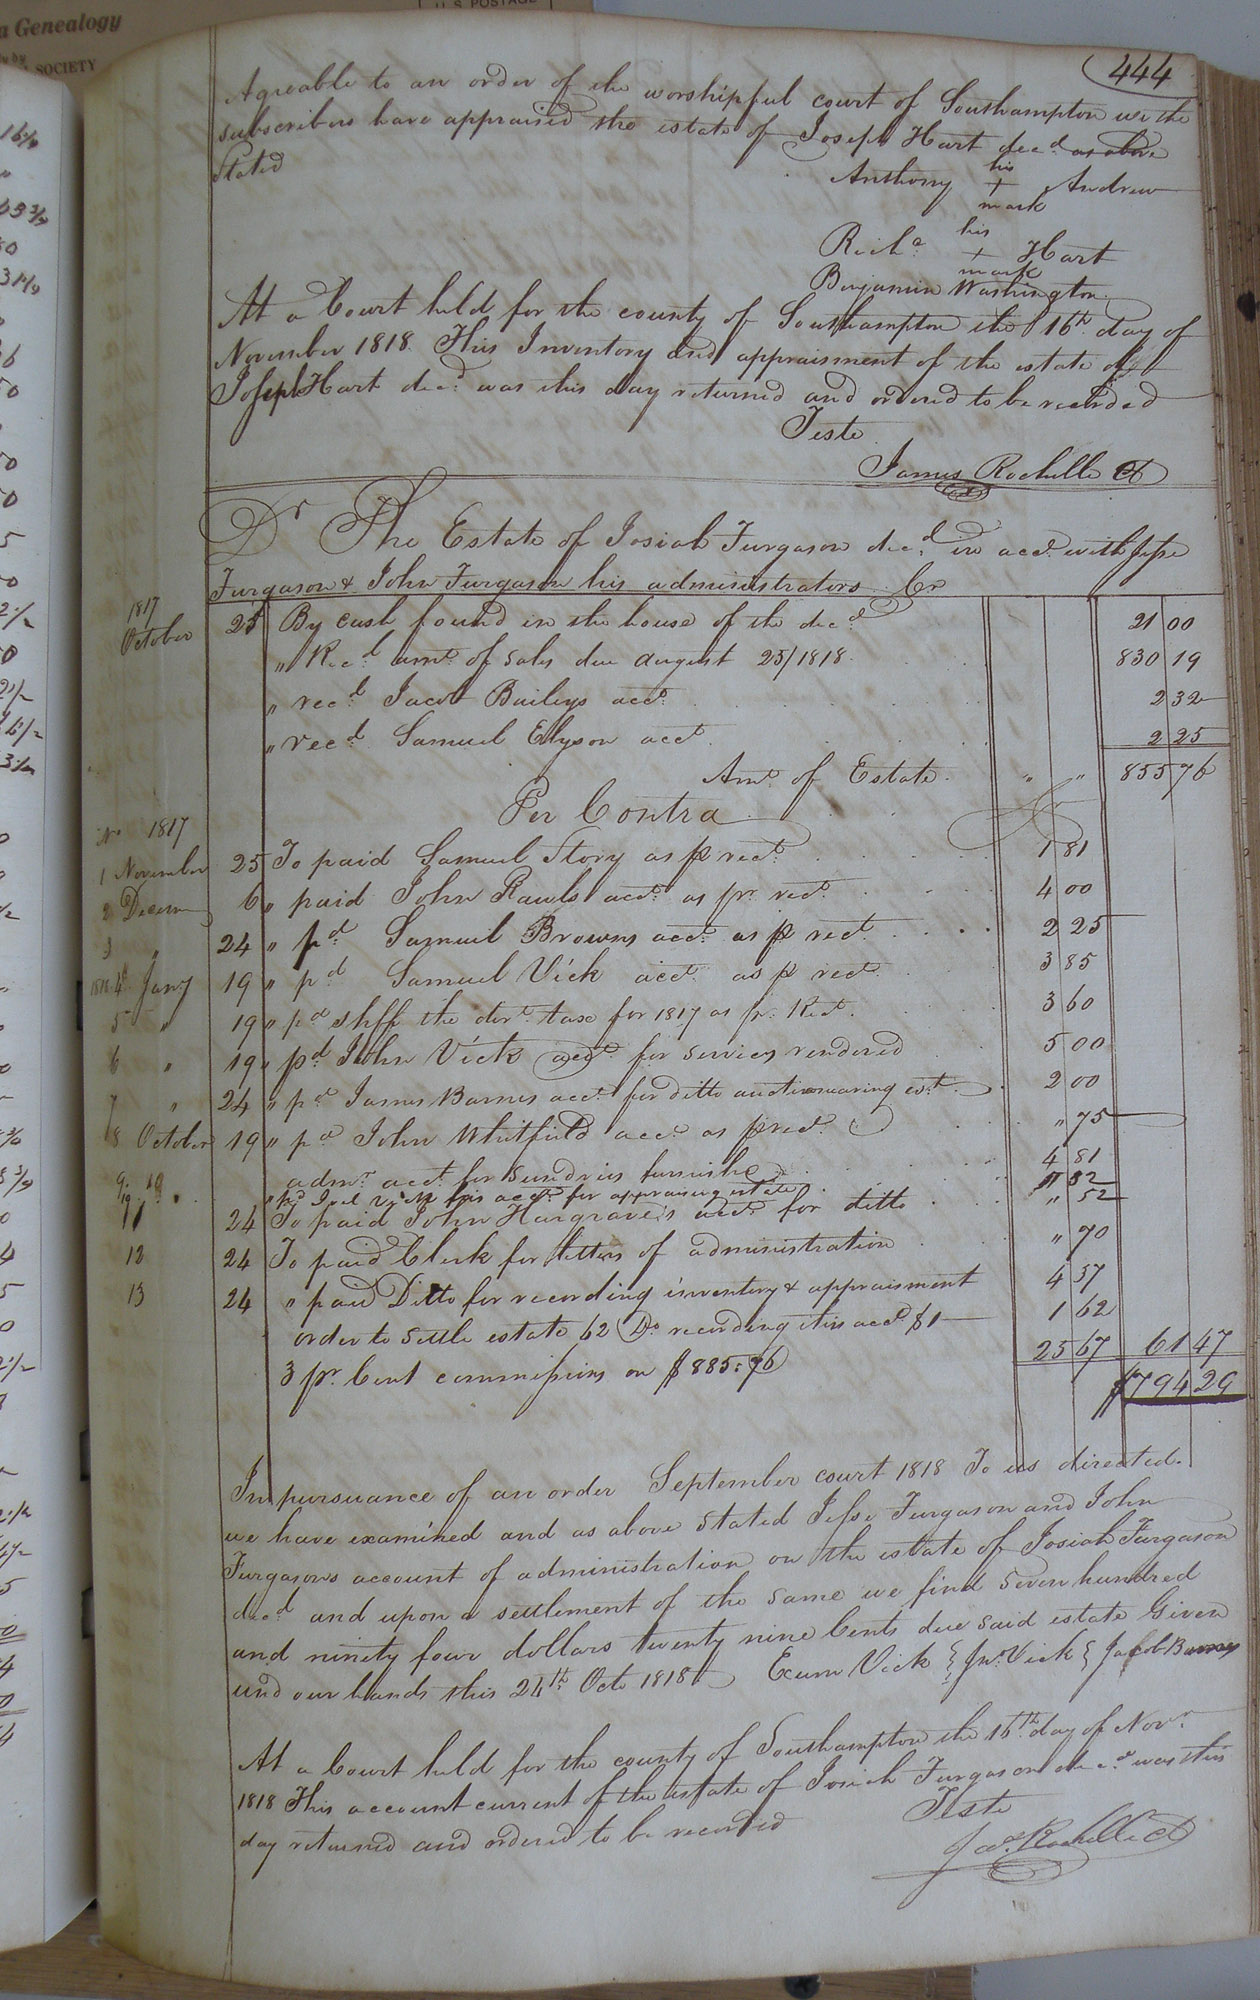 a Genealogy
SOCIETY
U.S. POSTAGE
444
Agreable to an order of the worshipful court of Southampton we the
subscribers have appraised the estate of Joseph Hart decd as above
Stated
Anthony his + mark Andrew
Richd his + mark Hart
Benjamin Washington
At a Court held for the county of Southampton the 16th day of
November 1818 This Inventory and appraisment of the estate of
Joseph Hart decd was this day returned and ordered to be recorded
Teste
James Rochelle Ct
Dr The Estate of Josiah Furgason decd in acct with Jesse
Furgason & John Furgason his administrators Cr
1817
October 25 By cash found in the house of the decd 21 00
" Recd amt of sales due august 25/1818 830 19
" recd Jacob Baileys acct 2 32
" recd Samuel Elyson acct 2 25
Amt of Estate " " 855 76
Per Contra Dr
No 1817
1 November 25 To paid Samuel Story as pr rect 1 81
2 Decem 6 " paid John Rawls acct as pr rect 4 00
3 " 24 " pd Samuel Browns acct as pr rect 2 25
1818 4 Jany 19 " pd Samuel Vick acct as pr rect 3 85
5 " 19 " pd shff the dirt taxe for 1817 as pr Rect 3 60
6 " 19 " pd John Vick acct for services rendered 5 00
7 " 24 " pd James Barnes acct for ditto auctionearing est 2 00
8 October 19 " pd John Whitfield acct as pr rect " 75
9 19 admr acct for Sundries furnishd 4 81
10 " " pd Joel Vick his acct for appraising estate " 52
11 24 To paid John Hargrave's acct for ditto " 52
12 24 To paid Clerk for letters of administration " 70
13 24 " paid Ditto for recording inventory & appraisment 4 57
order to settle estate 62 Do recording this acct $1 1 62
3 pr Cent commissions on $885:76 25 67 61 47
$794 29
In pursuance of an order September court 1818 To us directed
we have examined and as above stated Jesse Furgason and John
Furgasons account of administration on the estate of Josiah Furgason
decd and upon a settlement of the same we find seven hundred
and ninety four dollars twenty nine Cents due said estate Given
und our hands this 24th Octo 1818 Exum Vick } Jno Vick } Jacob Barnes
At a Court held for the county of Southampton the 16th day of Novr
1818 This account current of the estate of Josiah Furgason decd was this
day returned and ordered to be recorded
Teste
Jas Rochelle Ct